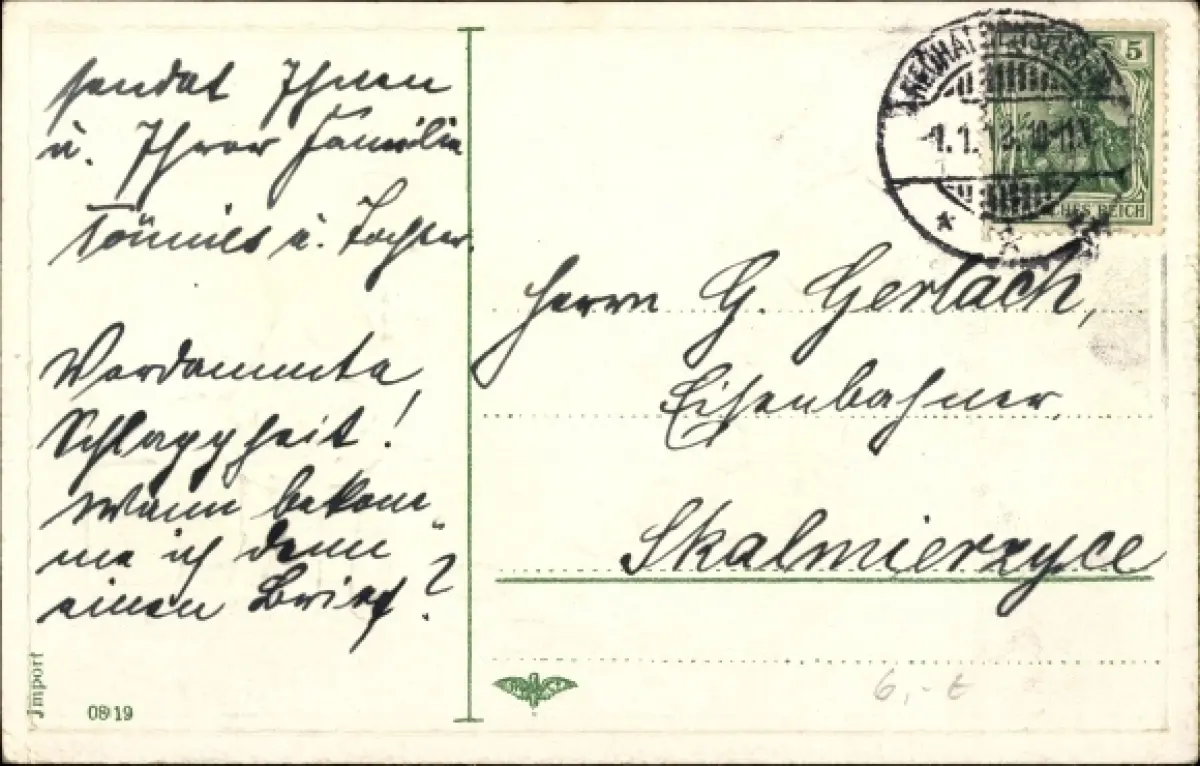 sendet Ihnen
u. Ihrer Familie
Tönnies u. Tochter.
Verdammte
Schlappheit!
Wann bekom„
me ich denn
einen Brief?
Import
0819
1.1.13.10-11V.
5
DEUTSCHES REICH
Herrn G. Gerlach,
Eisenbahner,
Skalmierzyce
6,- t